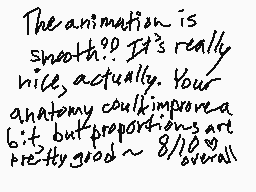 The animation is
smooth?! It's really
nice, actually. Your
anatomy could improve a
bit, but proportions are
pretty good ~ 8/10 ♡
overall